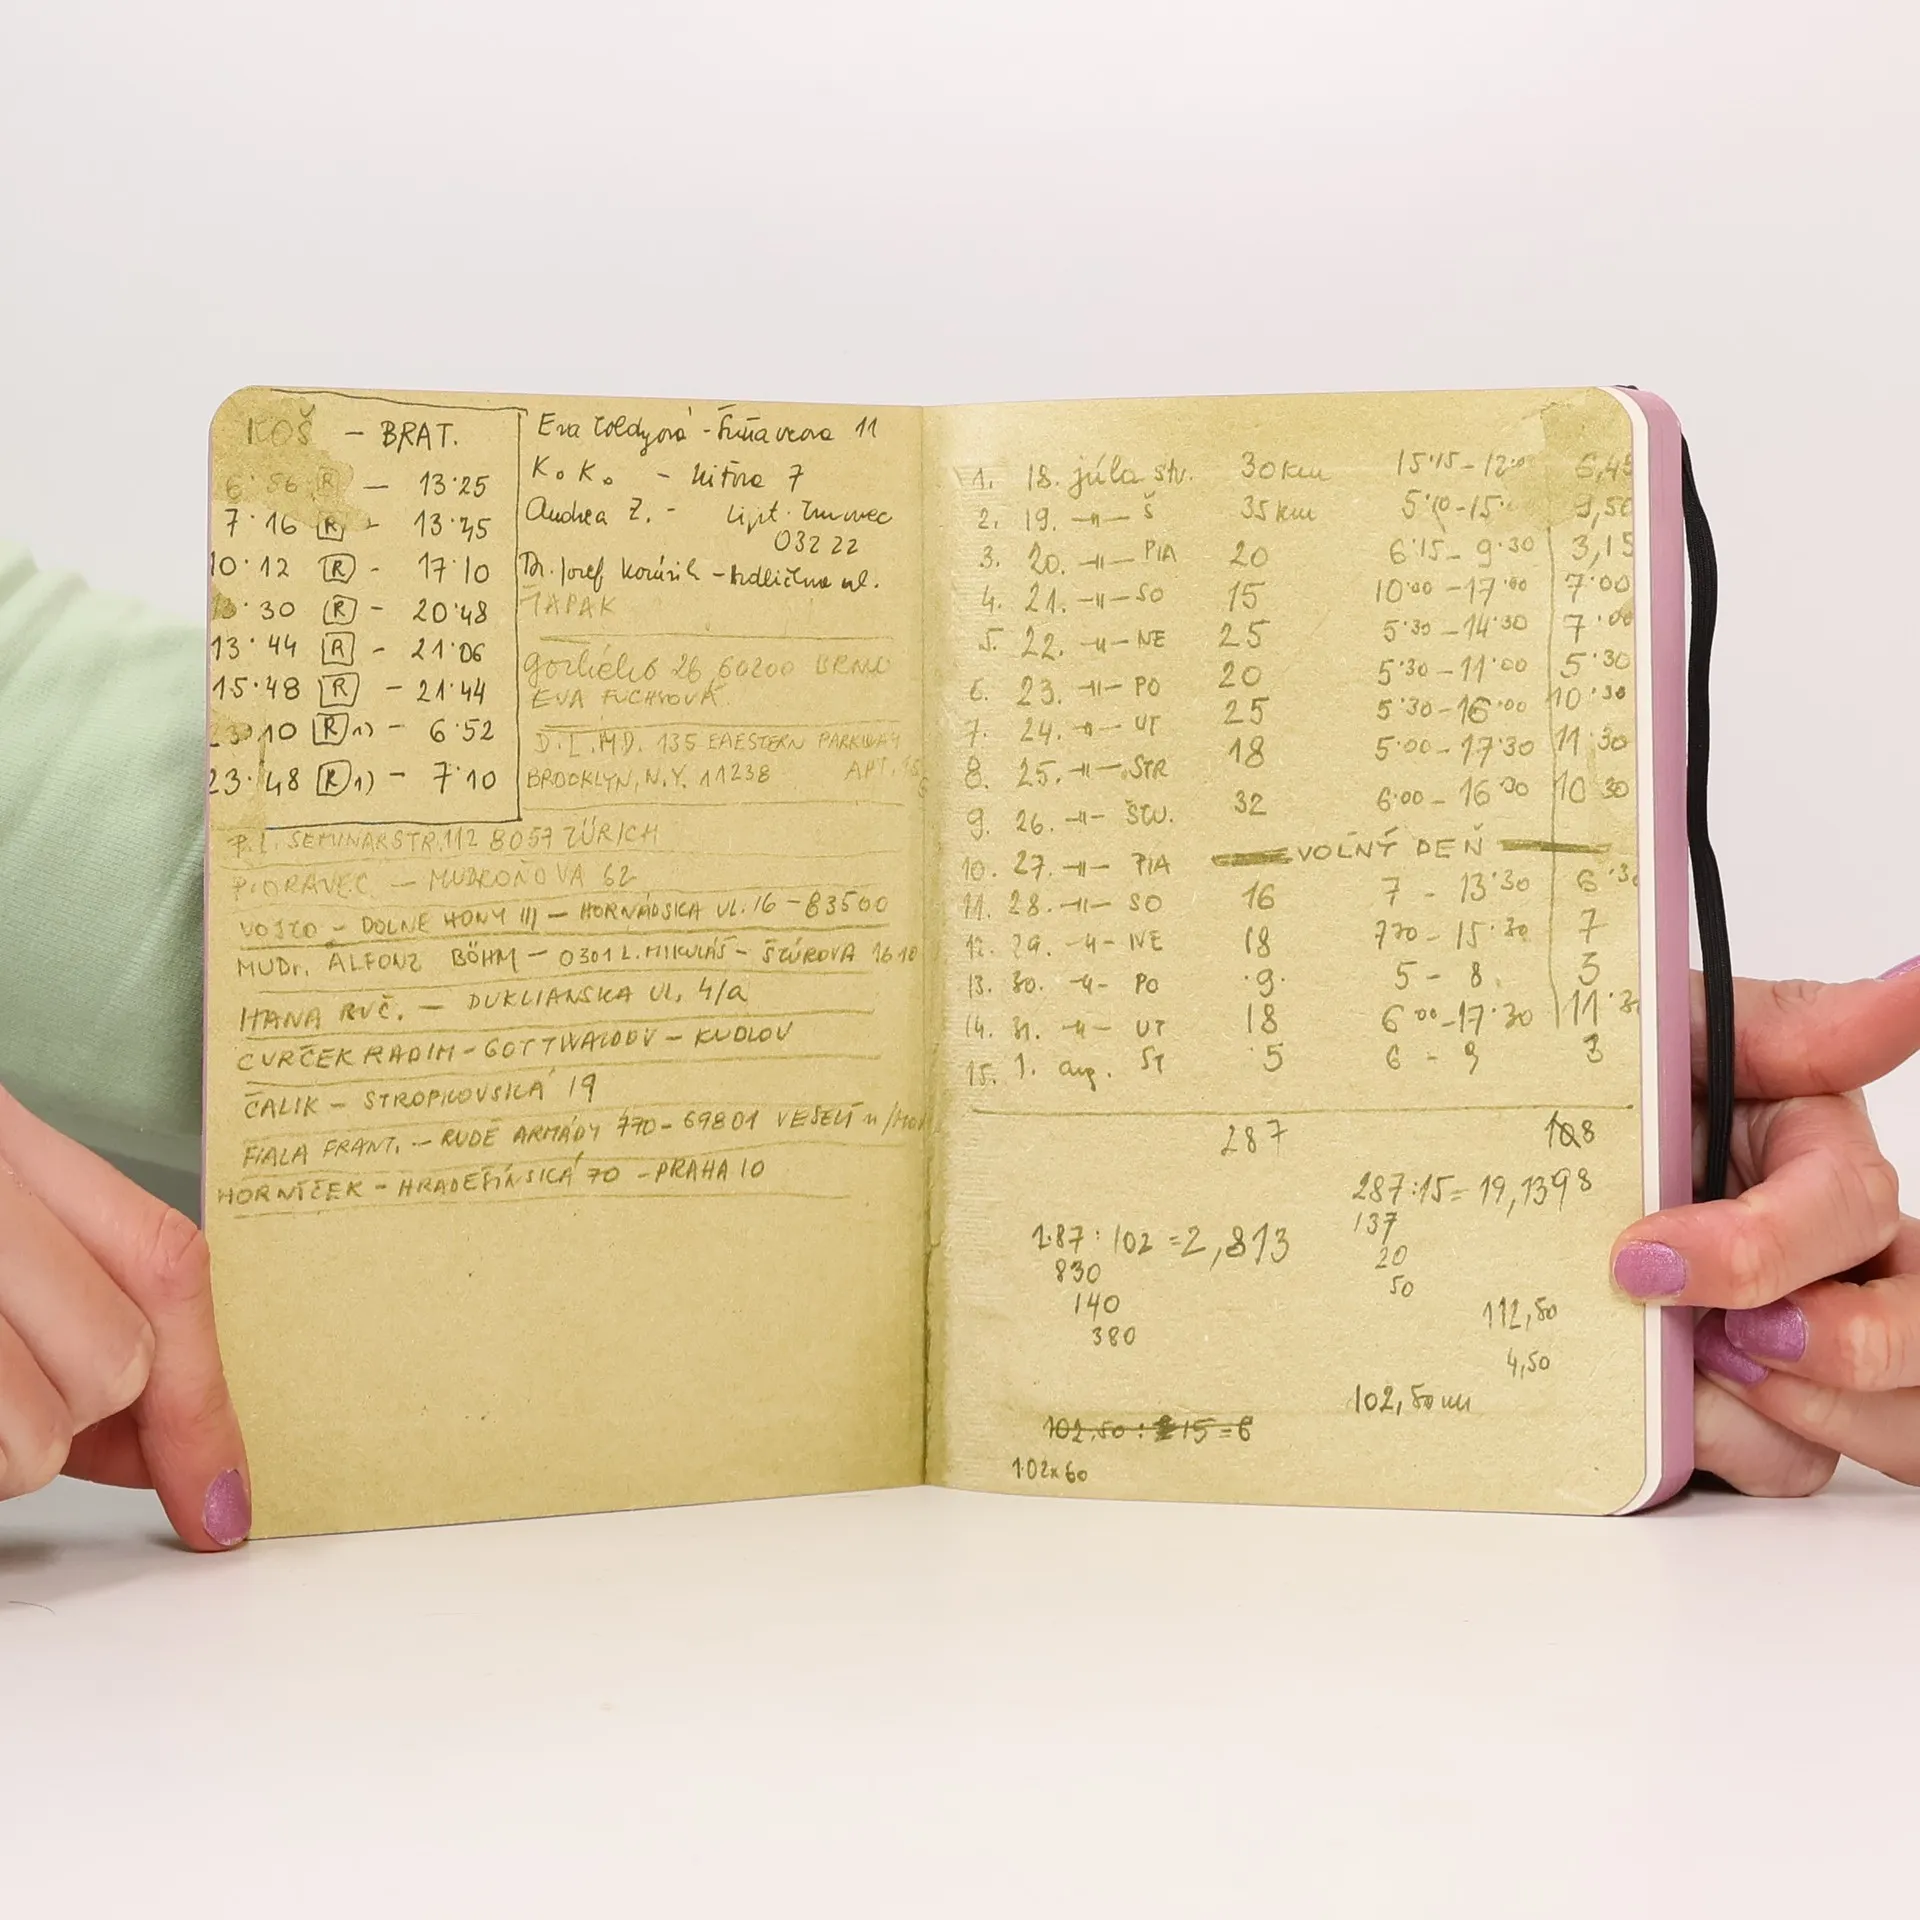 KOŠ – BRAT.
6·56 R – 13·25
7·16 R – 13·45
10·12 R – 17·10
13·30 R – 20·48
13·44 R – 21·06
15·48 R – 21·44
23·10 R 1) – 6·52
23·48 R 1) – 7·10
Eva 11
K. K. – 7
Andrea Z. – Lipt.
032 22
Dr. Jozef ul.
ŤAPAK
Gorkého 26, 60200 BRNO
EVA FUCHSOVÁ
D. L. MD. 135 EAESTERN PARKWAY
BROOKLYN, N.Y. 11238 APT.
P. L. SEMINARSTR. 112 8057 ZÜRICH
P. ORAVEC – MUDROŇOVA 62
VOJTO – DOLNÉ HONY III – HORNÁDSKA UL. 16 – 83500
MUDr. ALFONZ BÖHM – 0301 L. MIKULÁŠ – ŠTÚROVA 1610
HANA RUČ. – DUKLIANSKA UL. 4/a
CVRČEK RADIM – GOTTWALDOV – KUDLOV
ČALIK – STROPKOVSKÁ 19
FIALA FRANT. – RUDÉ ARMÁDY 770 – 69801 VESELÍ n/Mor
HORNÍČEK – HRADEŠÍNSKÁ 70 – PRAHA 10
1. 18. júla štv. 30 km 15·15 – 12·00 6,45
2. 19. –〃– Š 35 km 9,50
3. 20. –〃– PIA 20 6·15 – 9·30 3,15
4. 21. –〃– SO 15 10·00 – 17·00 7·00
5. 22. –〃– NE 25 5·30 – 14·30 7·00
6. 23. –〃– PO 20 5·30 – 11·00 5·30
7. 24. –〃– UT 25 5·30 – 16·00 10·30
8. 25. –〃– STR 18 5·00 – 17·30 11·30
9. 26. –〃– ŠTV. 32 6·00 – 16·30 10·30
10. 27. –〃– PIA VOĽNÝ DEŇ
11. 28. –〃– SO 16 7 – 13·30 6·30
12. 29. –〃– NE 18 7·30 – 15·30 7
13. 30. –〃– PO 9 5 – 8 3
14. 31. –〃– UT 18 6·00 – 17·30 11·30
15. 1. aug. ST 5 6 – 9 3
287 108
287:15 = 19,1398
137
20
50
287:102 = 2,813
830
140
380
112,50
4,50
102,50
102,50 : 15 = 6
102x60